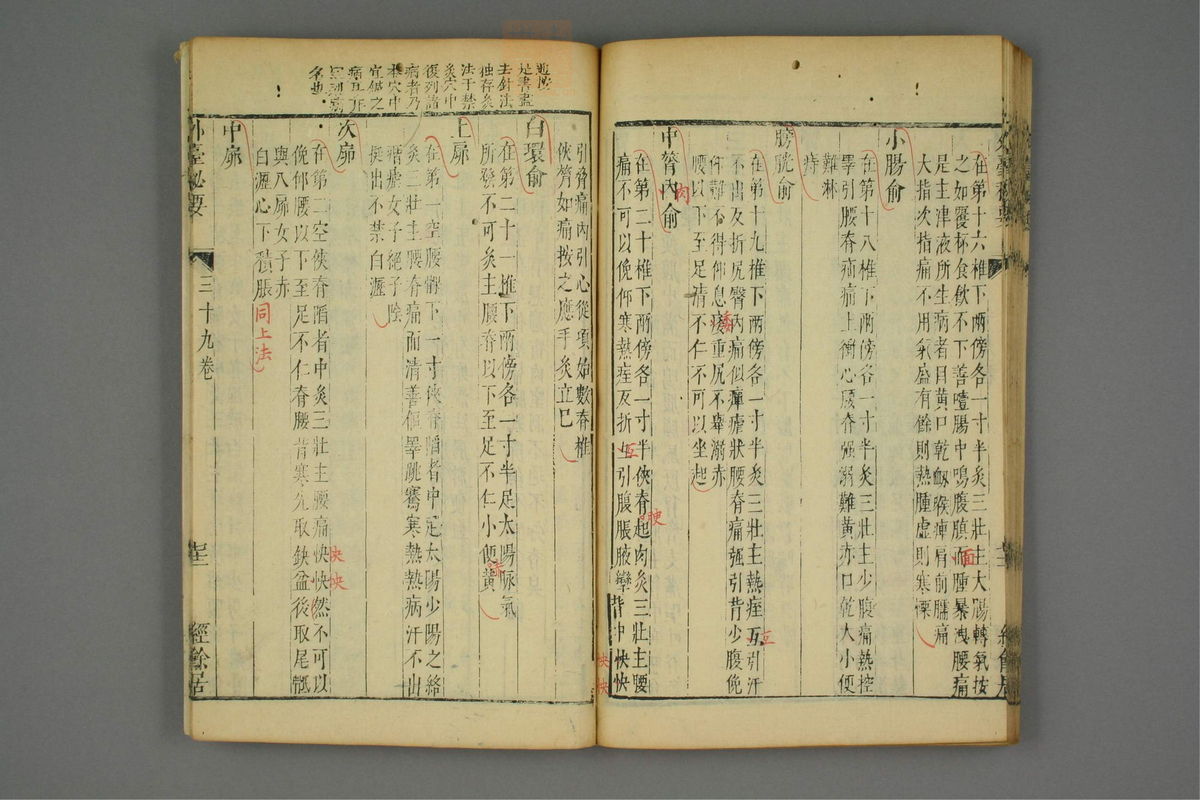 在第十六椎下兩傍各一寸半灸三壯主大腸轉氣按
之如覆杯食飲不下善噎腸中鳴腹䐜而腫暴洩腰痛
是主津液所生病者目黃口乾鼽喉痺肩前臑痛
大指次指痛不用氣盛有餘則熱腫虛則寒慄
小腸俞
在第十八椎下兩傍各一寸半灸三壯主少腹痛熱控
睪引腰脊疝痛上衝心腰脊强溺難黃赤口乾大小便
難淋
痔
膀胱俞
在第十九椎下兩傍各一寸半灸三壯主熱痓互引汗
不出反折尻臀內痛似癉瘧狀腰脊痛强引背少腹俛
仰難不得仰息痿重尻不舉溺赤
腰以下至足清不仁不可以坐起
中膂內俞
在第二十椎下兩傍各一寸半俠脊起肉灸三壯主腰
痛不可以俛仰寒熱痓反折互引腹脹腋攣背中怏怏
引脅痛內引心從項始數脊椎
俠膂如痛按之應手灸立已
白環俞
在第二十一椎下兩傍各一寸半足太陽脉氣
所發不可灸主腰脊以下至足不仁小便黃
上窌
在第一空腰髁下一寸俠脊陷者中足太陽少陽之絡
灸三壯主腰脊痛而清善傴睪跳騫寒熱熱病汗不出
痎瘧女子絕子陰
挺出不禁白瀝
次窌
在第二空俠脊陷者中灸三壯主腰痛怏怏然不可以
俛仰腰以下至足不仁脊腰背寒先取缺盆後取尾骶
與八窌女子赤
白瀝心下積脹
同上法
中窌
外臺秘要
三十九卷
經餘居
是書盡
去針法
独存灸
法于禁
灸穴中
復列諸
病者乃
本穴中
宜鍼之
名也
肉
怏怏